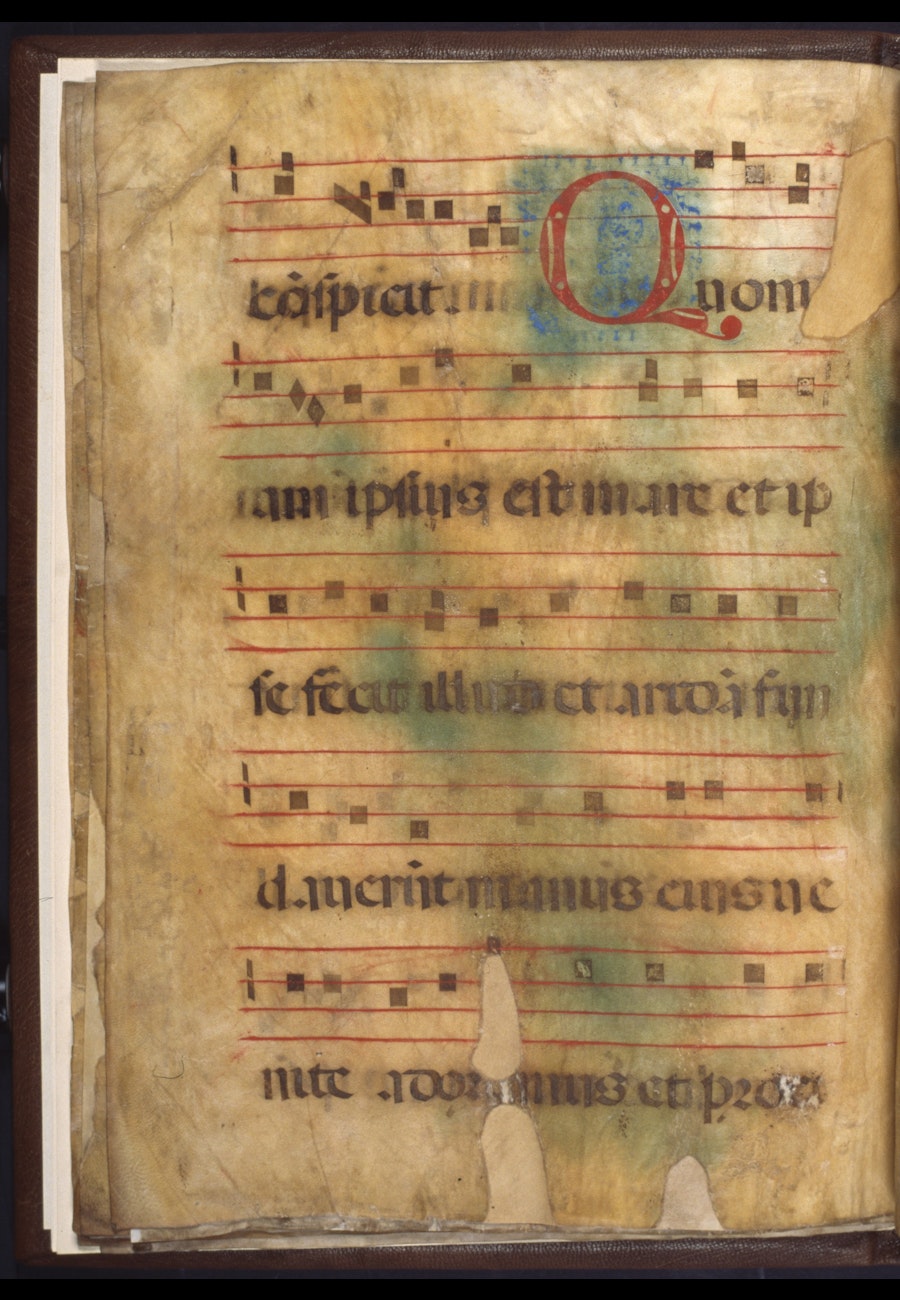 cōspicit. Quoni
am ipsius est mare et ip
se fecit illud et aridā fun
dauerūt manus eius ue
nite adoremus et proci